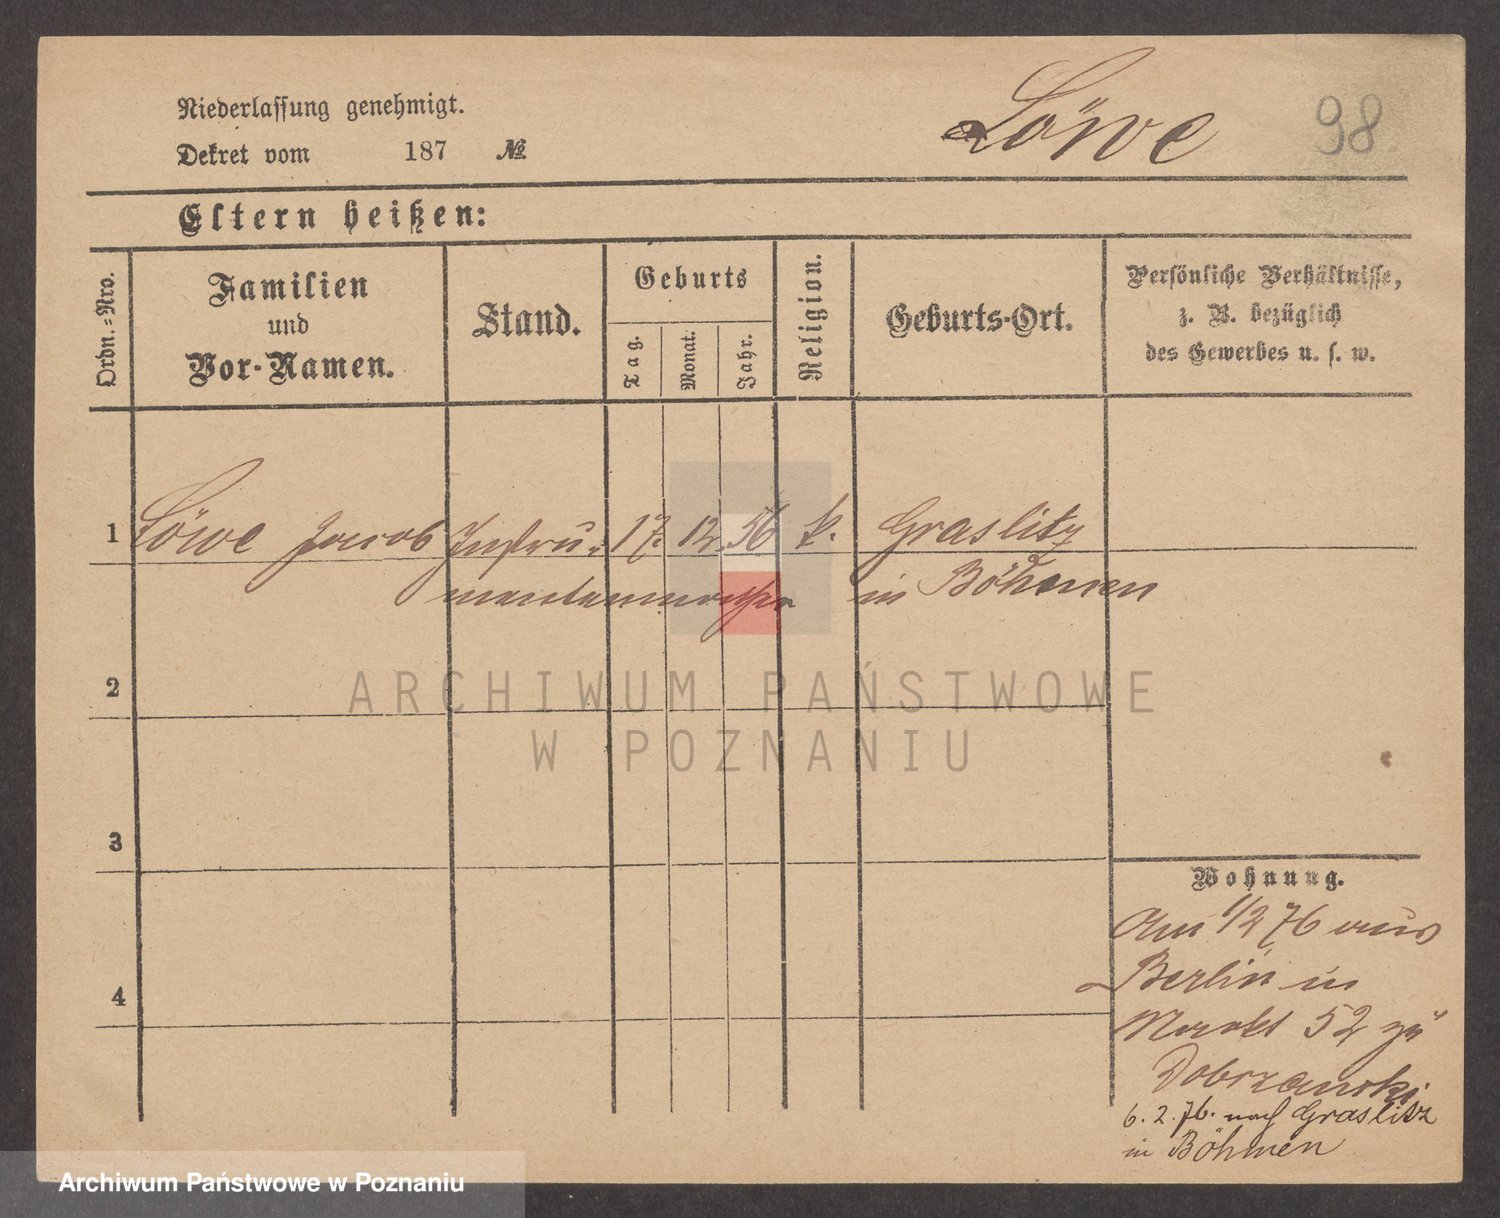 Niederlassung genehmigt.
Dekret vom 187 №
Löwe
98
Eltern heißen:
Ordn.=Nro.
Familien
und
Vor-Namen.
Stand.
Geburts
Tag.
Monat.
Jahr.
Religion.
Geburts-Ort.
Persönliche Verhältnisse,
z. B. bezüglich
des Gewerbes u. s. w.
1 Löwe Jacob Instru- 17. 12. 56 k. Graslitz
mentenmacher in Böhmen
2
ARCHIWUM PAŃSTWOWE
W POZNANIU
3
4
Wohnung.
Am 1/2 76 aus
Berlin in
Markt 52 zu
Dobrzanski
6. 2. 76. nach Graslitz
in Böhmen
Archiwum Państwowe w Poznaniu